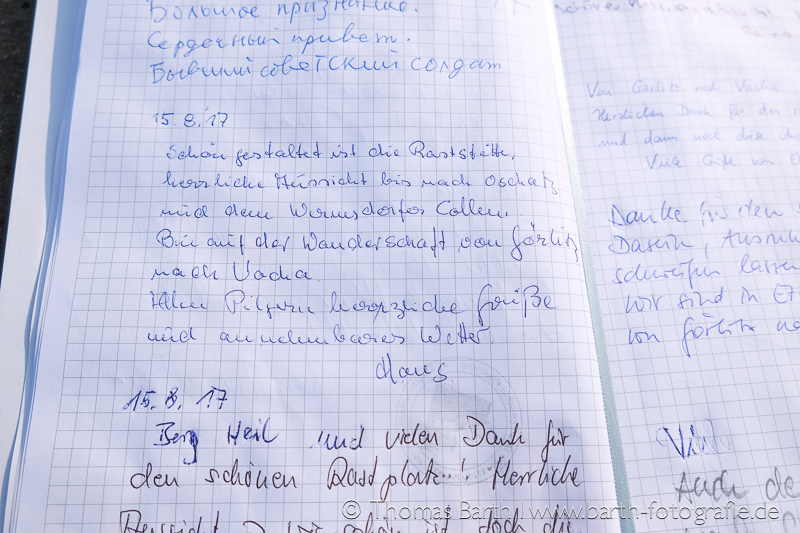 Большое признание.
Сердечный привет.
Бывший советский солдат
15.8.17
Schön gestaltet ist die Raststätte,
herrliche Aussicht bis nach Oschatz
und dem Wermsdorfer Collm.
Bin auf der Wanderschaft von Görlitz
nach Vacha.
Allen Pilgern herzliche Grüße
und annehmbares Wetter.
Hans
15.8.17
Berg Heil und vielen Dank für
den schönen Rastplatz! Herrliche
Aussicht
ist doch die
Von Görlitz nach Vacha
Herzlichen Dank für den
und dann noch diese
Viele Grüße von
Danke für den
Dasein,
lassen
wir sind in
von Görlitz
Auch de
© Thomas Barth | www.barth-fotografie.de